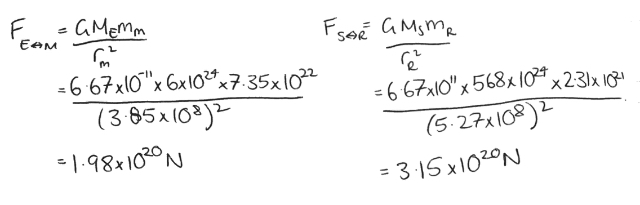 F_{E↔M} = GM_Em_m / r_m^2
= 6.67x10^-11 x 6x10^24 x 7.35x10^22 / (3.85x10^8)^2
= 1.98x10^20 N
F_{S↔R} = GM_Sm_R / r_R^2
= 6.67x10^11 x 568x10^24 x 2.31x10^21 / (5.27x10^8)^2
= 3.15x10^20 N